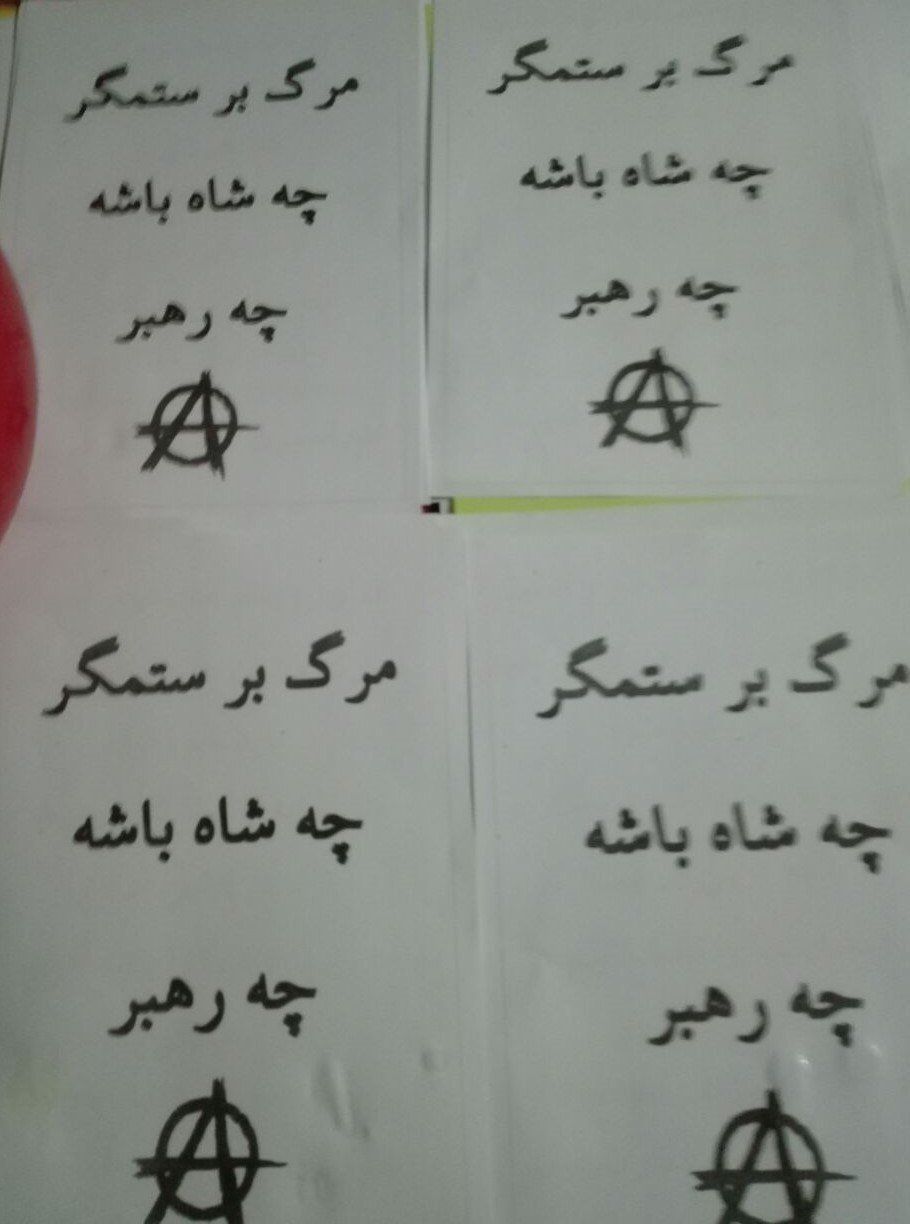 مرگ بر ستمگر
چه شاه باشه
چه رهبر
مرگ بر ستمگر
چه شاه باشه
چه رهبر
مرگ بر ستمگر
چه شاه باشه
چه رهبر
مرگ بر ستمگر
چه شاه باشه
چه رهبر